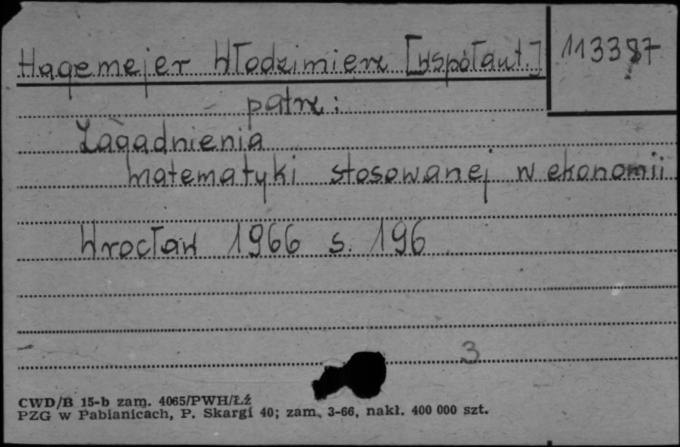 Hagemejer Włodzimierz [współaut.]
113387
patrz:
Zagadnienia
matematyki stosowanej w ekonomii
Wrocław 1966 s. 196
3
CWD/B 15-b zam. 4065/PWH/Łź
PZG w Pabianicach, P. Skargi 40; zam. 3-66, nakł. 400 000 szt.